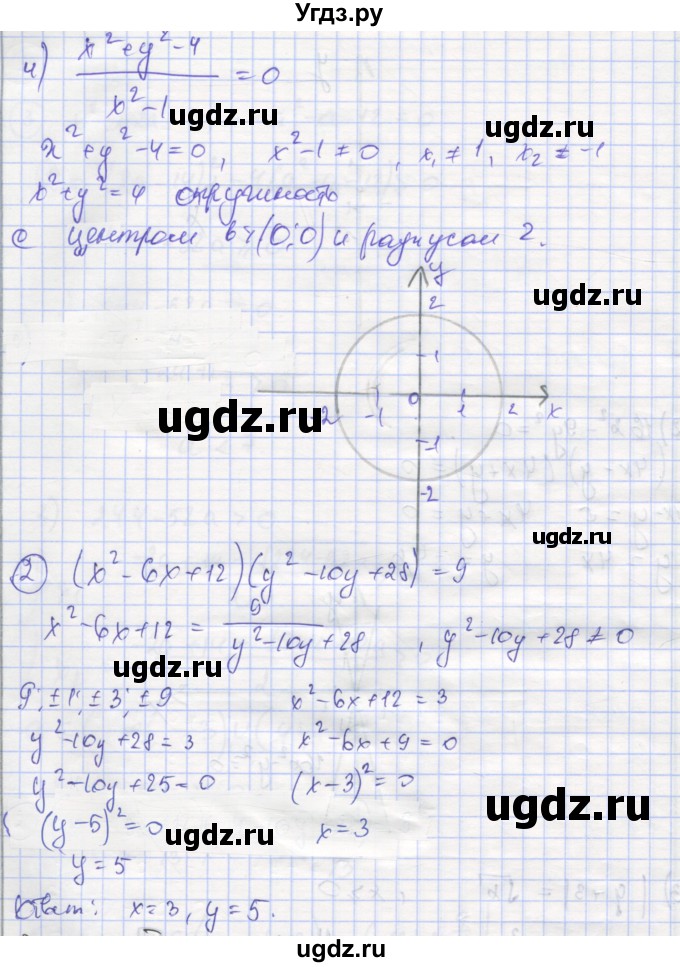 Угдз.ру
4) (x²+y²-4)/(x²-1) = 0
ugdz.ru
x²+y²-4=0, x²-1≠0, x₁≠1, x₂≠-1
x²+y²=4 окружность
ugdz.ru
с центром в т(0;0) и радиусом 2.
y
ugdz.ru
2
1
ugdz.ru
-2 -1 0 1 2 x
-1
-2
ugdz.ru
② (x²-6x+12)(y²-10y+28)=9
x²-6x+12 = 9/(y²-10y+28), y²-10y+28≠0
ugdz.ru
9; ±1; ±3; ±9 x²-6x+12=3
y²-10y+28=3 x²-6x+9=0
y²-10y+25=0 (x-3)²=0
ugdz.ru
(y-5)²=0 x=3
ugdz.ru
y=5
Ответ: x=3, y=5.
ugdz.ru
ugdz.ru